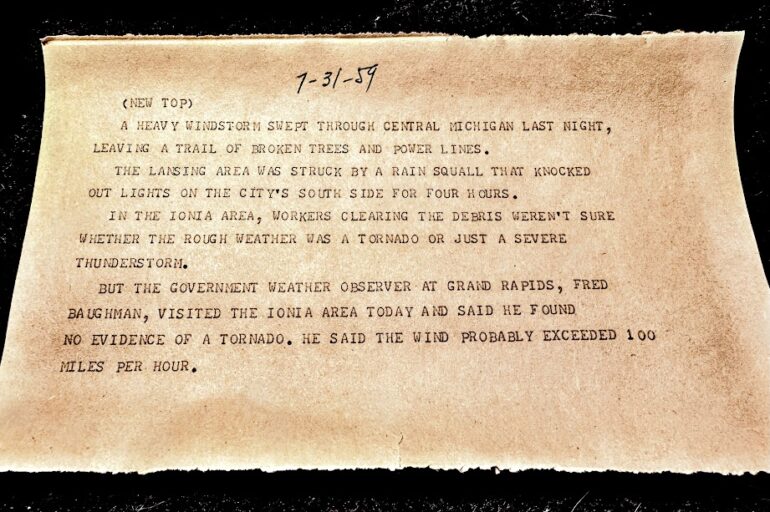 7-31-59
(NEW TOP)
A HEAVY WINDSTORM SWEPT THROUGH CENTRAL MICHIGAN LAST NIGHT,
LEAVING A TRAIL OF BROKEN TREES AND POWER LINES.
THE LANSING AREA WAS STRUCK BY A RAIN SQUALL THAT KNOCKED
OUT LIGHTS ON THE CITY'S SOUTH SIDE FOR FOUR HOURS.
IN THE IONIA AREA, WORKERS CLEARING THE DEBRIS WEREN'T SURE
WHETHER THE ROUGH WEATHER WAS A TORNADO OR JUST A SEVERE
THUNDERSTORM.
BUT THE GOVERNMENT WEATHER OBSERVER AT GRAND RAPIDS, FRED
BAUGHMAN, VISITED THE IONIA AREA TODAY AND SAID HE FOUND
NO EVIDENCE OF A TORNADO. HE SAID THE WIND PROBABLY EXCEEDED 100
MILES PER HOUR.